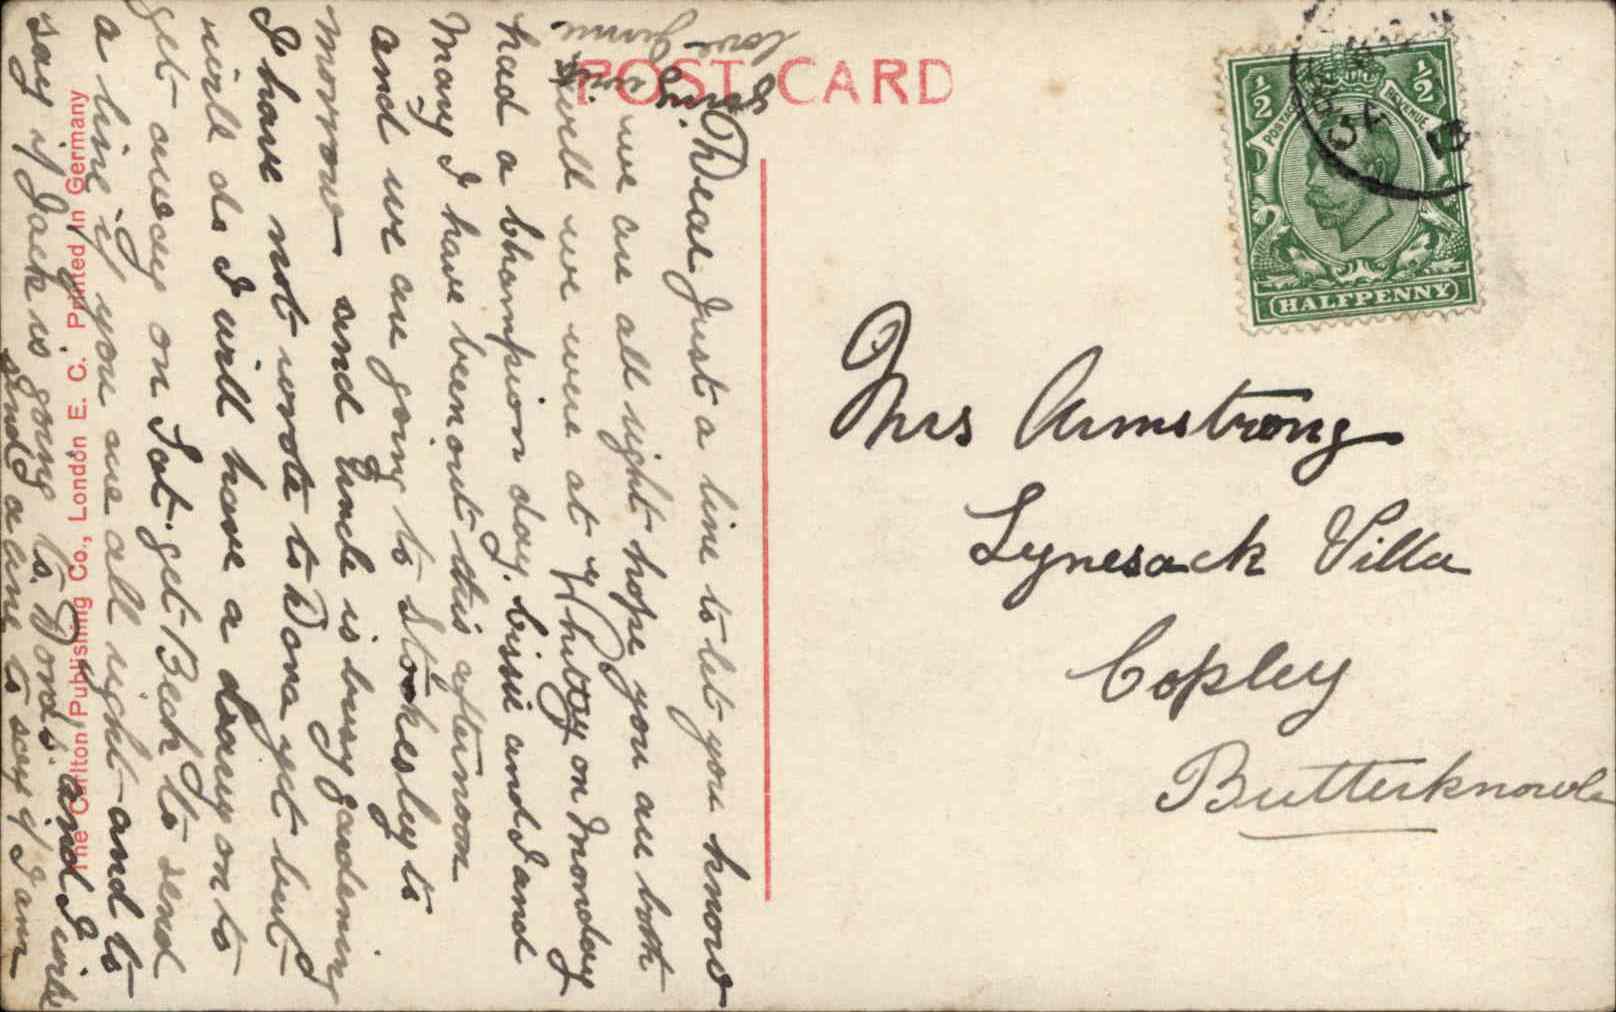 POST CARD
½
½
POSTAGE
REVENUE
HALFPENNY
13
Mrs Armstrong
Lynesack Villa
Copley
Butterknowle
Dear Just a line to let you know
we are all right hope you are both
well we were at Whitby on Monday
had a champion day. Cissie and I and
May I have been out this afternoon
and we are going to Stokesley to
morrow and Uncle is busy gardening
I have not wrote to Dora yet but I
will do I will have a drag on to
get away on Sat. get Beck to send
a line if you are all right and to
say if Jack is going to Dora's and I will
send a line to say if I am
love Jennie
The Carlton Publishing Co., London E. C. Printed in Germany